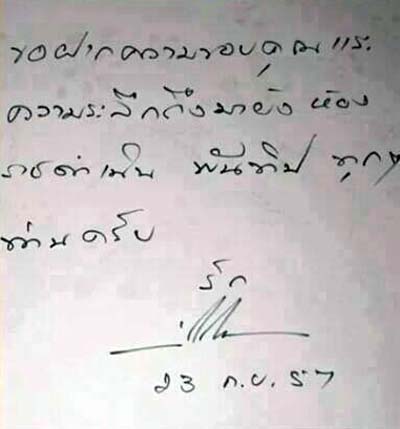 ขอฝากความขอบคุณ และ
ความระลึกถึงมายัง ห้อง
ราชดำเนิน พันทิป ทุกๆ
ท่านครับ
รัก
23 ก.ย. 57